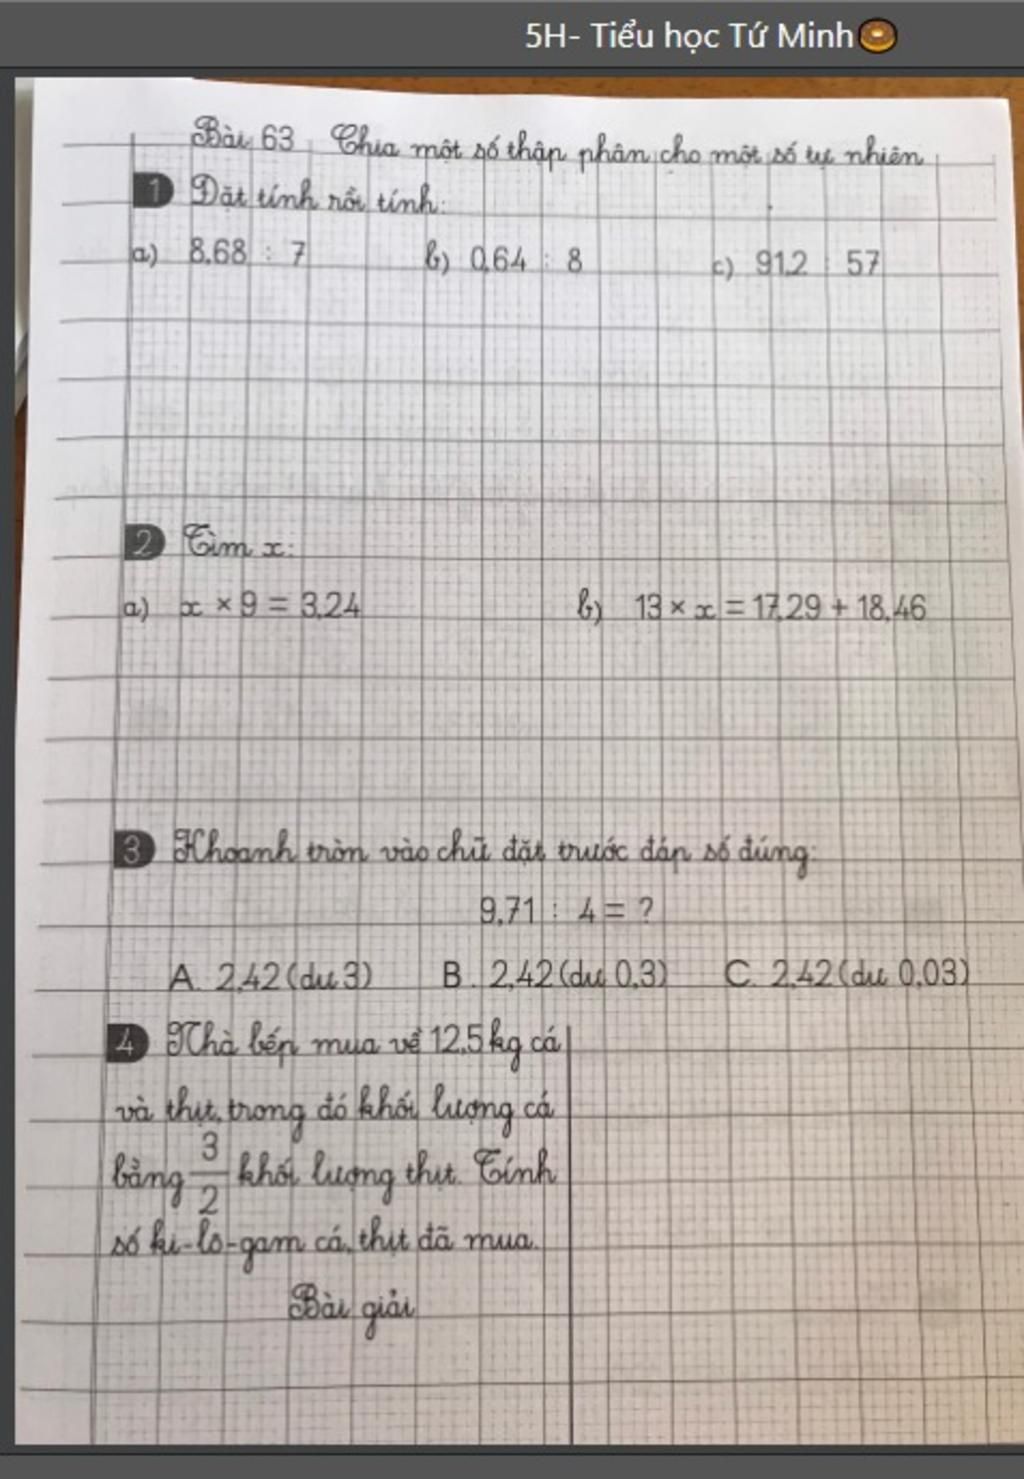 5H- Tiểu học Tứ Minh🍩
Bài 63 Chia một số thập phân cho một số tự nhiên
1 Đặt tính rồi tính:
a) 8,68 : 7 b) 0,64 : 8 c) 91,2 : 57
2 Tìm x:
a) x × 9 = 3,24 b) 13 × x = 17,29 + 18,46
3 Khoanh tròn vào chữ đặt trước đáp số đúng:
9,71 : 4 = ?
A. 2,42 (dư 3) B. 2,42 (dư 0,3) C. 2,42 (dư 0,03)
4 Nhà bếp mua về 12,5kg cá
và thịt, trong đó khối lượng cá
bằng 3/2 khối lượng thịt. Tính
số ki-lô-gam cá, thịt đã mua.
Bài giải